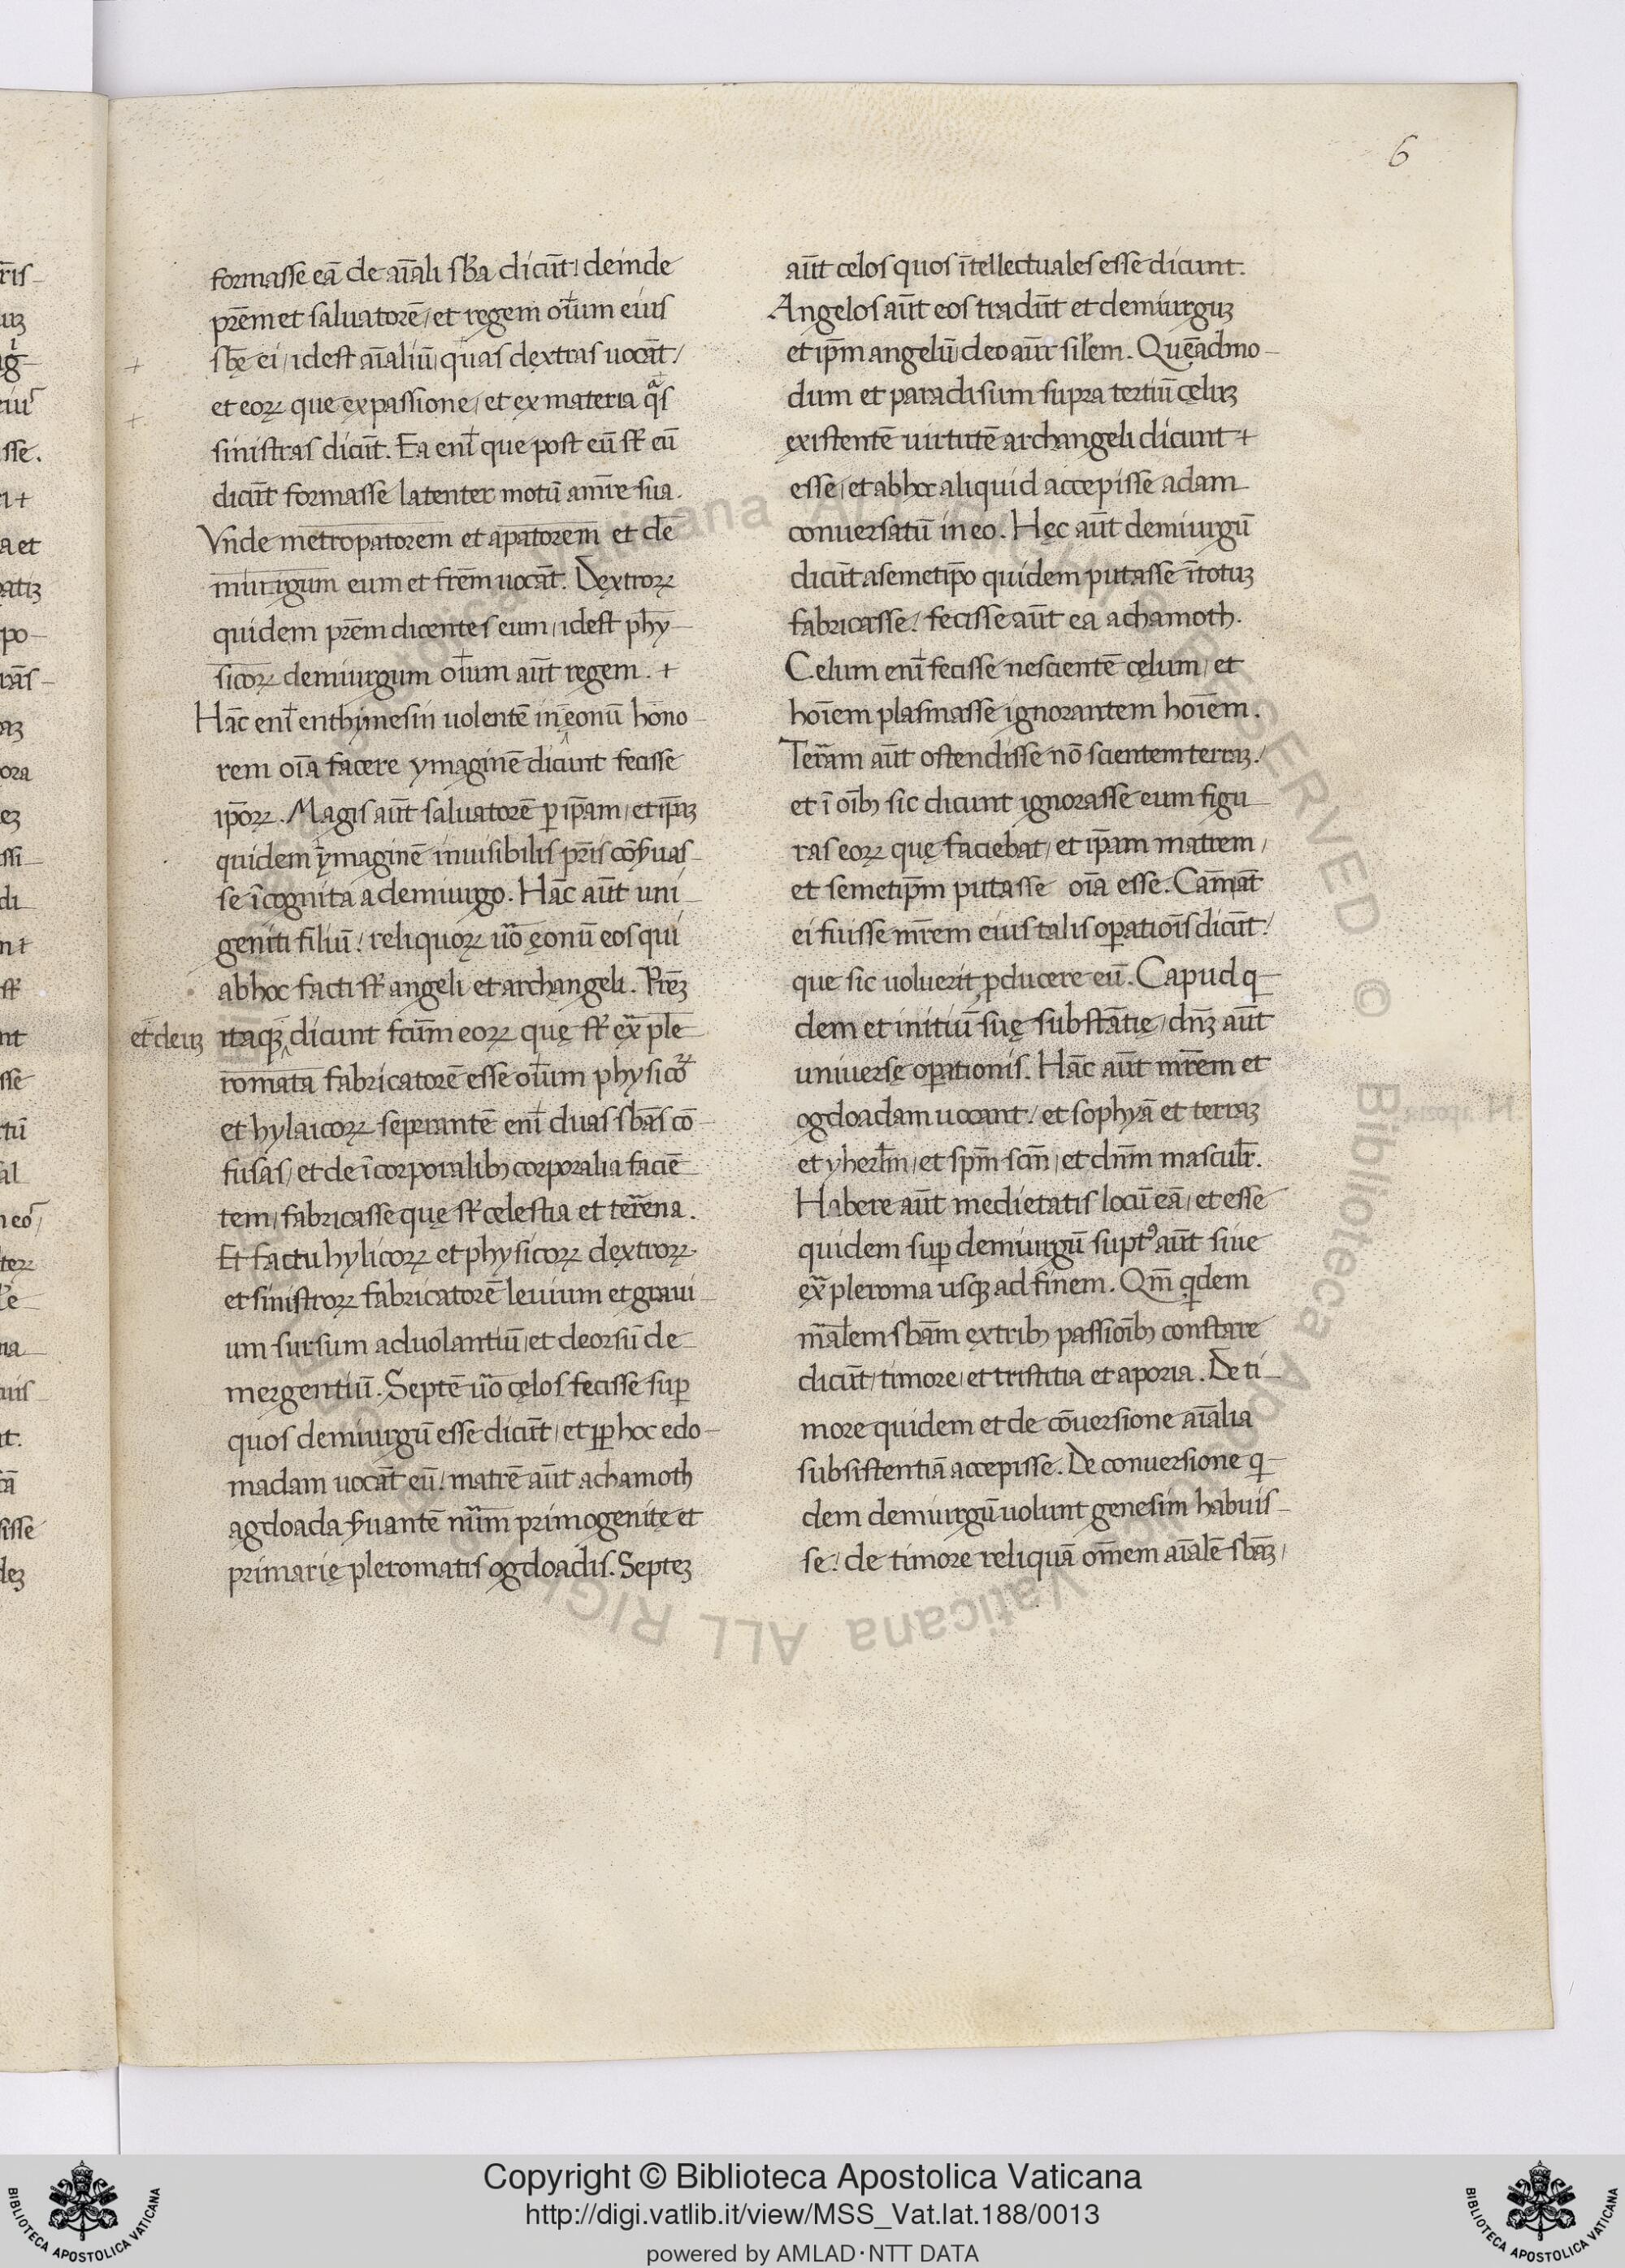 6
formasse eā de aīali sb̄a dicūt! deinde
pr̄em et saluatorē, et regem oīum eius
sb̄ę ei, idest aīaliū, quas dęxtras uocāt,
et eoꝝ que ęx passione, et ęx materia q̄s
sinistras dicūt. Ea enī que post eū st̄ eū
dicūt formasse latenter motū a mr̄e sua.
Vnde metropatorem et apatorem et de
miurigum eum et frēm uocāt. Dęxtroꝝ
quidem pr̄em dicentes eum, idest phy
sicoꝝ demiurgum oīum aūt regem. +
Hāc enī enthymesin uolentē in ęonū hono
rem oīa facere ymaginē dicunt fecisse
ip̄oꝝ. Magis aūt saluatorē ꝑ ip̄am, et ip̄aꝫ
quidem ymaginē inuisibilis pr̄is cōẜuas
se īcognita a demiurgo. Hāc aūt uni
geniti filiū! reliquoꝝ ūo ęonū eos qui
ab hoc facti st̄ angeli et archangeli. Pr̄eꝫ
et deuꝫ
itaqꝫ dicunt fc̄um eoꝝ quę st̄ ex̄ ple
romata fabricatorē esse oīum physicoꝝ
et hylaicoꝝ seperantē enī duas sb̄as cō
fusas, et de īcorporalibꝫ corporalia faciē
tem, fabricasse quę st̄ celestia et terrena.
Et factu hylicoꝝ et physicoꝝ dęxtroꝝ
et sinistroꝝ fabricatorē leuium et graui
um sursum aduolantiū, et deorsū de
mergentiū. Septē ūo cęlos fecisse suꝑ
quos demiurgū esse dicūt, et ꝓꝑ hoc edo
madam uocāt eū! matrē aūt achamoth
agdoada ẜuantē nūm primogenitę et
primarię pleromatis ogdoadis. Septeꝫ
aūt celos quos ītellectuales esse dicunt.
Angelos aūt eos tradūt et demiurguꝫ
et ip̄m angelū, deo aūt sil̄em. Quēadmo
dum et paradisum supra tertiū cęluꝫ
existentē uirtutē archangeli dicunt +
esse, et ab hoc aliquid accepisse adam
conuersatū in eo. Hęc aūt demiurgū
dicūt a semetip̄o quidem putasse ī totuꝫ
fabricasse! fecisse aūt ea achamoth.
Celum enī fecisse nescientē cęlum, et
hoīem plasmasse ignorantem hoīem.
Terram aūt ostendisse nō scientem terraꝫ,
et ī oībꝫ sic dicunt ignorasse eum figu
ras eoꝝ quę faciebat, et ip̄am matrem,
et semetip̄m putasse oīa esse. Cām aūt
ei fuisse mr̄em eius talis oꝑatiōis dicūt!
que sic uoluerit ꝓducere eū. Capud q
dem et initiū suę substātię, dn̄ꝫ aūt
uniuerse oꝑationis. Hāc aūt mr̄em et
ogdoadam uocant! et sophyā et terraꝫ
et yherlm̄, et sp̄m sc̄m, et dn̄m masculr̄.
Habere aūt medietatis locū eā, et esse
quidem suꝑ demiurgū supt᾽ aūt siue
ex̄ pleroma usqꝫ ad finem. Qm̄ qdem
māl̄em sb̄am ęx tribꝫ passiōibꝫ constare
dicūt, timore, et tristitia et aporia. De ti
more quidem et de cōuersione aīalia
subsistentiā accepisse. De conuersione q
dem demiurgū uolunt genesim habuis
se! de timore reliquā om̄em aīalē sb̄aꝫ,
Copyright © Biblioteca Apostolica Vaticana
http://digi.vatlib.it/view/MSS_Vat.lat.188/0013
powered by AMLAD·NTT DATA
BIBLIOTECA APOSTOLICA VATICANA
BIBLIOTECA APOSTOLICA VATICANA